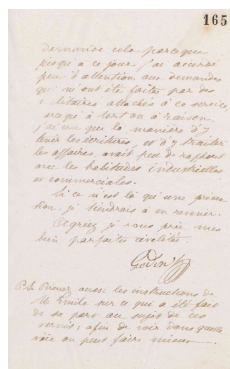 165
demande cela parce que
jusqu'à ce jour j'ai accordé
peu d'attention aux demandes
qui m'ont été faites par des
titulaires attachés à ce service
à tort ou à raison,
j'ai vu que la manière d'y
tenir les écritures et d'y traiter
les affaires, avait peu de rapport
avec les habitudes industrielles
et commerciales.
Si ce n'est là qu'une préven
tion, je tiendrais à en revenir.
Agréez je vous prie mes
bien parfaites civilités
Godin
P.S. Prenez aussi les instructions de
M. Émile sur ce qui a été fait
de sa part au sujet de ces
services, afin de voir dans quelle
voie on peut faire mieux.